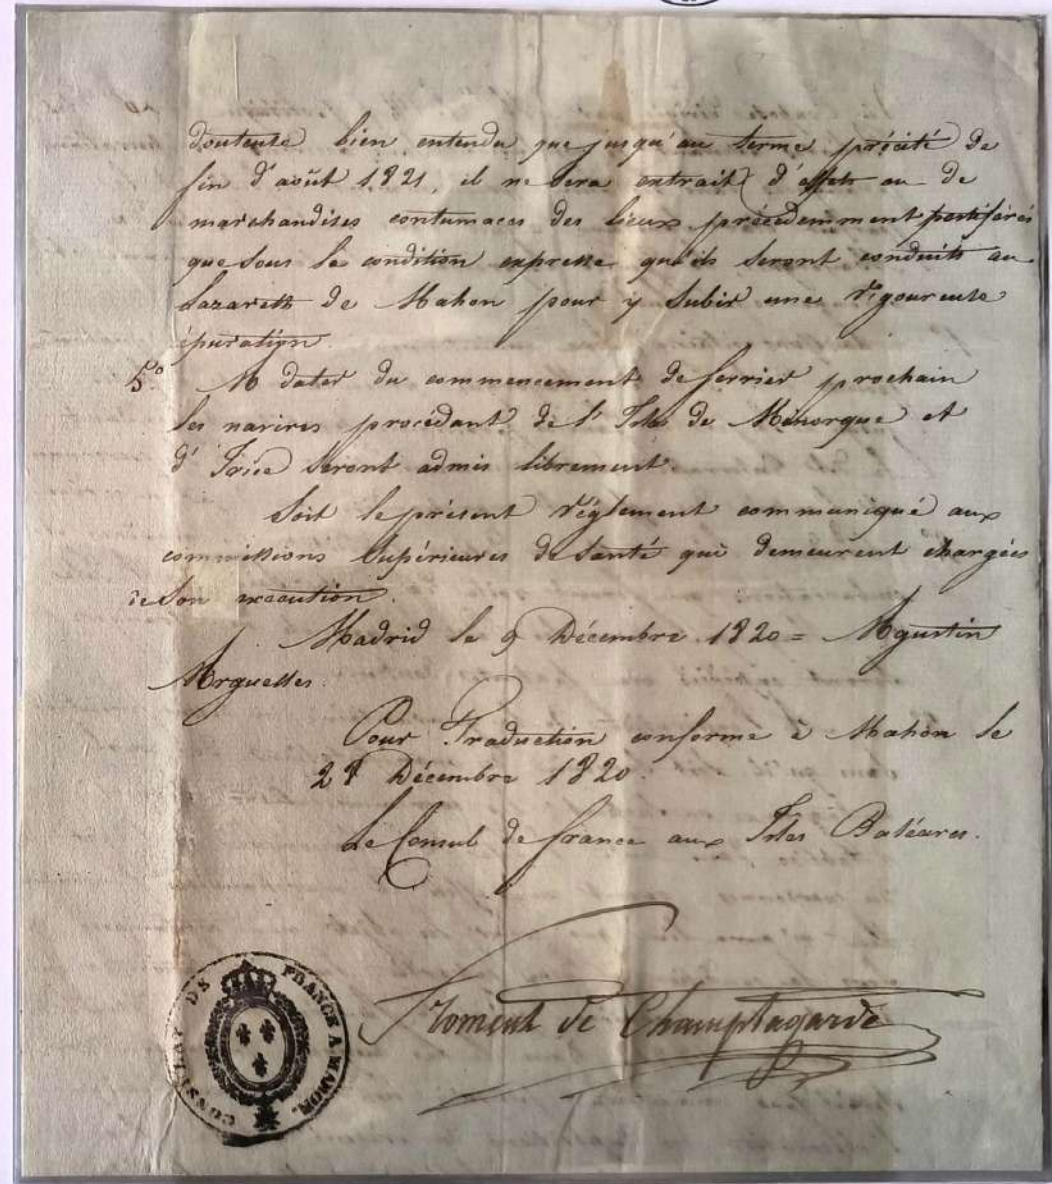 douteuse bien entendu que jusqu'au terme précité de
fin d'août 1821, il ne sera extrait d'effets ou de
marchandises contumaces des lieux précédemment pestiférés
que sous la condition expresse qu'ils seront conduits au
Lazareth de Mahon pour y subir une rigoureuse
épuration.
5º. A dater du commencement de ferrier prochain
les navires procédant de l'Isle de Minorque et
d'Ivice seront admis librement.
Soit le présent réglement communiqué aux
commissions supérieures de santé qui demeurent chargées
de son exécution.
Madrid le 9 Décembre 1820 = Agustin
Arguelles.
Pour Traduction conforme à Mahon le
28 Décembre 1820.
Le Consul de france aux Isles Baléares.
Froment de Champlagarde
CONSULAT DE FRANCE A MAHON.